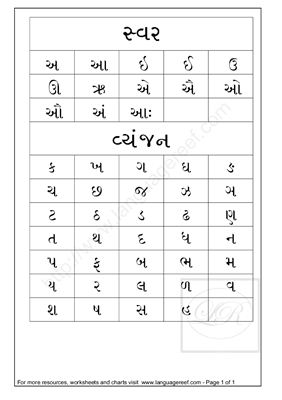 સ્વર
અ આ ઇ ઈ ઉ
ઊ ઋ એ ઐ ઓ
ઔ અં આઃ
વ્યંજન
ક ખ ગ ઘ ઙ
ચ છ જ ઝ ઞ
ટ ઠ ડ ઢ ણ
ત થ દ ધ ન
પ ફ બ ભ મ
ય ર લ ળ વ
શ ષ સ હ
For more resources, worksheets and charts visit www.languagereef.com - Page 1 of 1